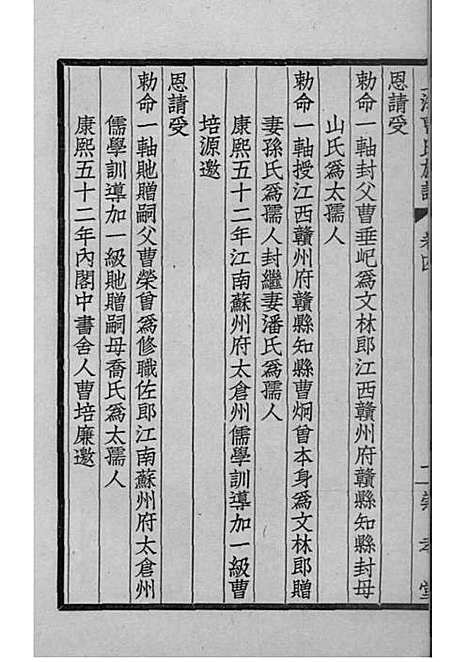 氏族譜
卷四
崇孝堂
恩請受
勅命一軸封父曹垂屺爲文林郎江西贛州府贛縣知縣封母
山氏爲太孺人
勅命一軸授江西贛州府贛縣知縣曹炯曾本身爲文林郎贈
妻孫氏爲孺人封繼妻潘氏爲孺人
康熙五十二年江南蘇州府太倉州儒學訓導加一級曹
培源邀
恩請受
勅命一軸貤贈嗣父曹榮曾爲修職佐郎江南蘇州府太倉州
儒學訓導加一級貤贈嗣母喬氏爲太孺人
康熙五十二年內閣中書舍人曹培廉邀